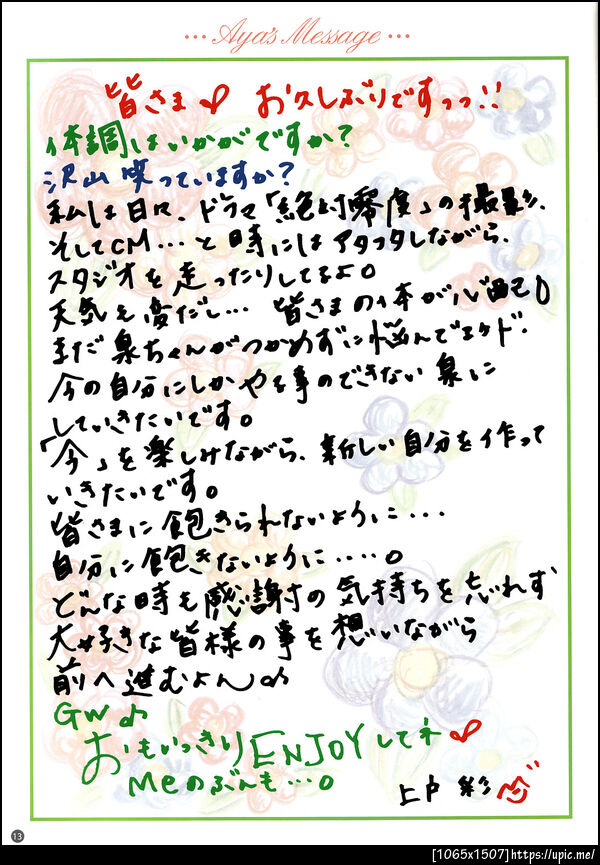 ··· Aya's Message ···
皆さま♡ お久しぶりですっっ!!
体調はいかがですか?
沢山笑っていますか?
私は日々、ドラマ「絶対零度」の撮影、
そしてCM...と時にはアタフタしながら、
スタジオを走ったりしてるよ。
天気も変だし... 皆さまの体が心配。
まだ泉ちゃんがつかめずに悩んでマスケド、
今の自分にしかやる事のできない泉に
していきたいです。
「今」を楽しみながら、新しい自分を作って
いきたいです。
皆さまに飽きられないように・・・・
自分に飽きないように・・・・。
どんな時も感謝の気持ちを忘れず
大好きな皆様の事を想いながら
前へ進むよん♪
GW♪
おもいっきりENJOYしてネ♡
Meのぶんも...。
上戸 彩
13
[1065x1507]https://upic.me/